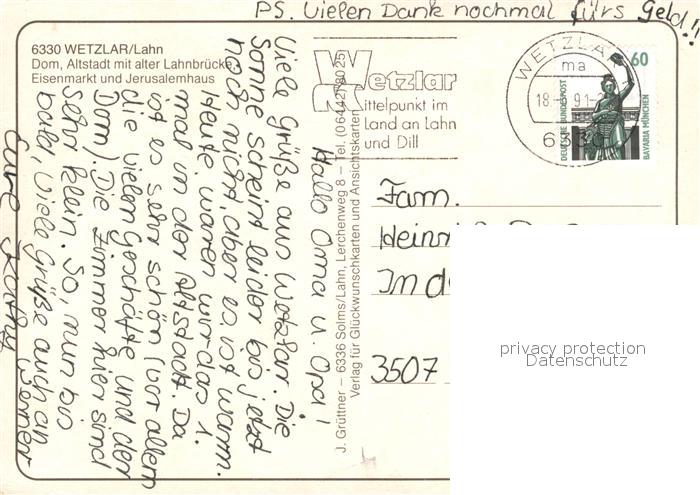 PS. Vielen Dank nochmal fürs Geld!!
6330 WETZLAR/Lahn
Dom, Altstadt mit alter Lahnbrücke,
Eisenmarkt und Jerusalemhaus
Hallo Oma u. Opa!
Viele Grüße aus Wetzlar. Die
Sonne scheint leider bis jetzt
noch nicht, aber es ist warm.
Heute waren wir das 1.
mal in der Altstadt. Da
ist es sehr schön (vor allem
die vielen Geschäfte und der
Dom). Die Zimmer hier sind
sehr klein. So, nun bis
bald, Viele Grüße auch an
Werner
Eure Kathy
J. Grüttner – 6336 Solms/Lahn, Lerchenweg 8 – Tel. (0 64 42) 80 25
Verlag für Glückwunschkarten und Ansichtskarten
Wetzlar
Mittelpunkt im
Land an Lahn
und Dill
WETZLAR
ma
18.
91
6330
60
DEUTSCHE BUNDESPOST
BAVARIA MÜNCHEN
Fam.
Im
3507
privacy protection
Datenschutz